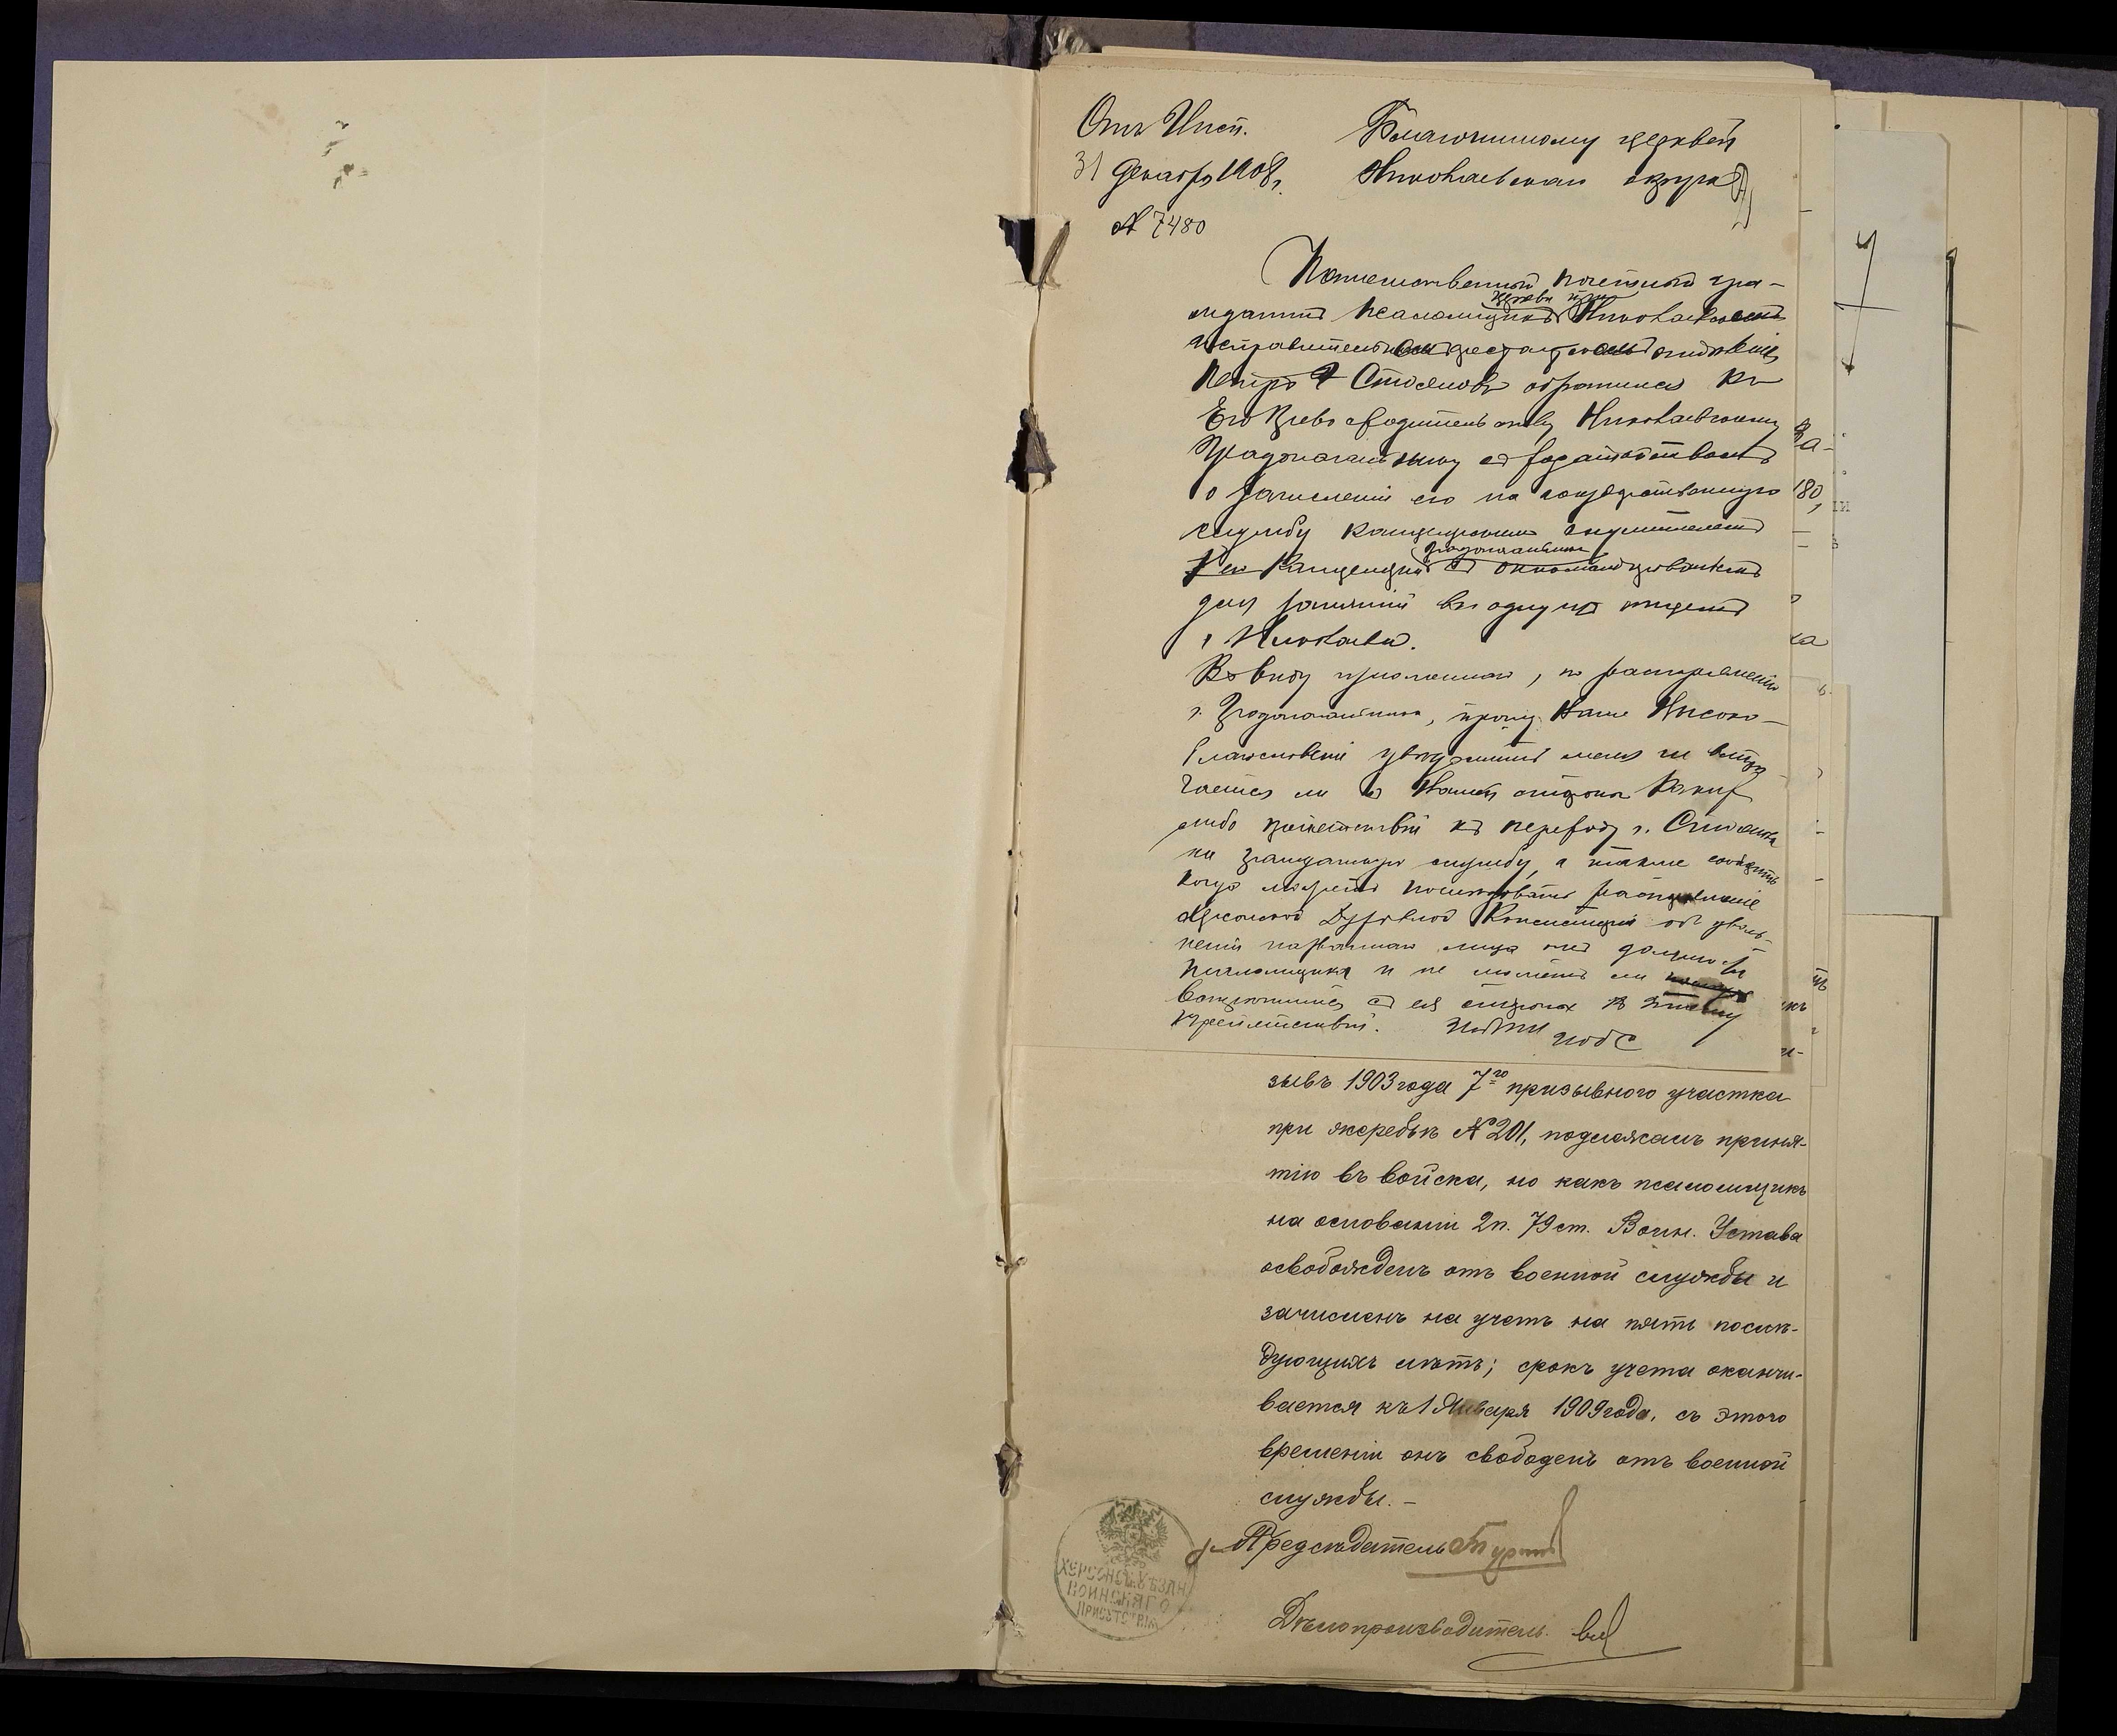 Отъ Инсп.
31 Декабря 1908 г.
№ 7480
Благочинному церквей
Николаевскаго округа
Потомственный почетный гра-
церкви при
жданинъ псаломщикъ Николаевскомъ
исправительномъ арестантскомъ отдѣленіи
Петръ Стояновъ обратился къ
Его Превосходительству Николаевскому
Градоначальнику съ ходатайствомъ
о зачисленіи его на государственную
службу канцелярскимъ служителемъ
Градоначальника
Канцеляріи съ откомандированіемъ
для занятій въ
г. Николаева.
Въ виду изложеннаго, по распоряженію
г. Градоначальника, прошу Ваше Высоко-
благословеніе увѣдомить меня не встрѣ-
чается ли съ Вашей стороны какихъ
либо препятствій къ переводу г. Стоянова
на гражданскую службу, а также сообщить
когда можетъ послѣдовать распоряженіе
Херсонской Духовной Консисторіи объ уволь-
неніи названнаго лица отъ должности
псаломщика и не можетъ ли
встрѣтиться съ ея стороны къ этому
препятствій.
зывъ 1903 года 7го призывного участка
при жеребьѣ № 201, подлежалъ приня-
тію въ войска, но какъ псаломщикъ
на основаніи 2 п. 79 ст. Воин. Устава
освобожденъ отъ военной службы и
зачисленъ на учетъ на пять послѣ-
дующихъ лѣтъ; срокъ учета оканчи-
вается къ 1 Января 1909 года, съ этого
времени онъ свободенъ отъ военной
службы. –
Предсѣдатель
ХЕРСОНСК. УѢЗДН.
ВОИНСКАГО
ПРИСУТСТВІЯ
Дѣлопроизводитель